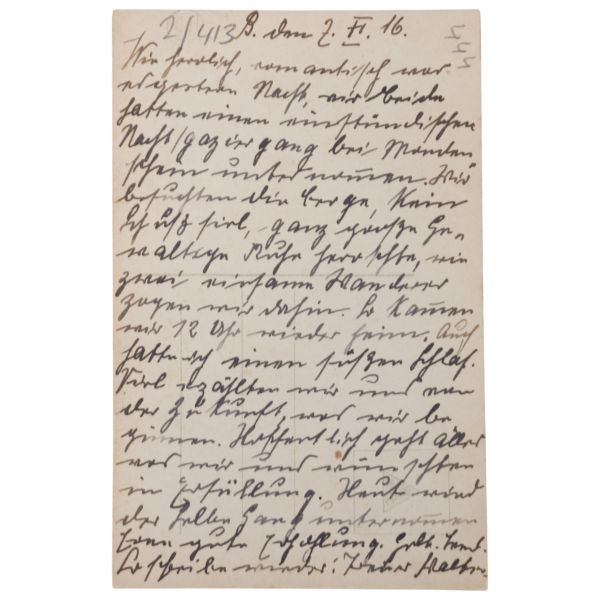 2/413 B. den 7. XI. 16. 444
Wie herrlich, romantisch war
es gestern Nacht, wir beide
hatten einen einstündischen
Nachtspaziergang bei Monden
schein unternommen. Wir
besuchten die Berge, Kein
Schuß fiel, ganz große Ge-
waltige Ruhe herrschte, wie
zwei einsame Wanderer
zogen wir dahin. So kamen
wir 12 Uhr wieder heim. Auch
hatte ich einen süßen Schlaf.
Viel erzählten wir uns von
der Zukunft, was wir be
ginnen. Hoffentlich geht alles
was wir uns wünschten
in Erfüllung. Heute wird
der selbe Gang unternommen
gute Erholung.
So schreibe wieder!